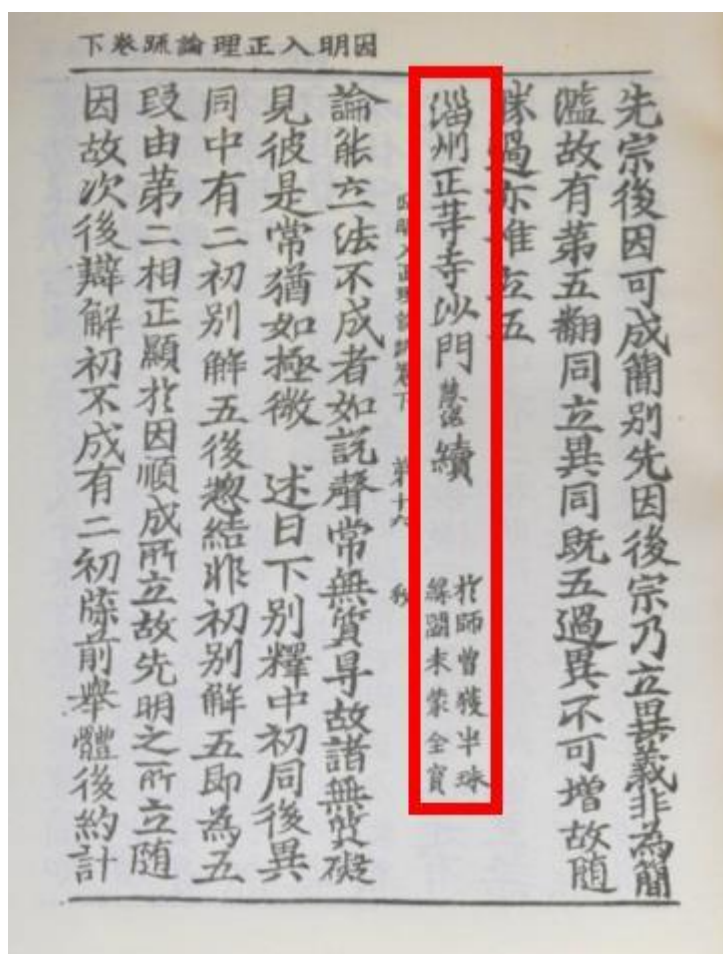 因明入正理論疏卷下
先宗後因可成簡別先因後宗乃立異義非為簡
濫故有第五翻同立異同既五過異不可增故隨
過亦唯立五
淄州正等寺沙門慧沼續
於師曾獲半珠
緣闕未蒙全寳
因明入正理論疏卷下 第十六
論能立法不成者如説聲常無質㝵故諸無質礙
見彼是常猶如極微 述曰下別釋中初同後異
同中有二初別解五後惣結非初別解五即為五
段由第二相正顯於因順成所立故先明之所立随
因故次後辯解初不成有二初牒前舉體後約計